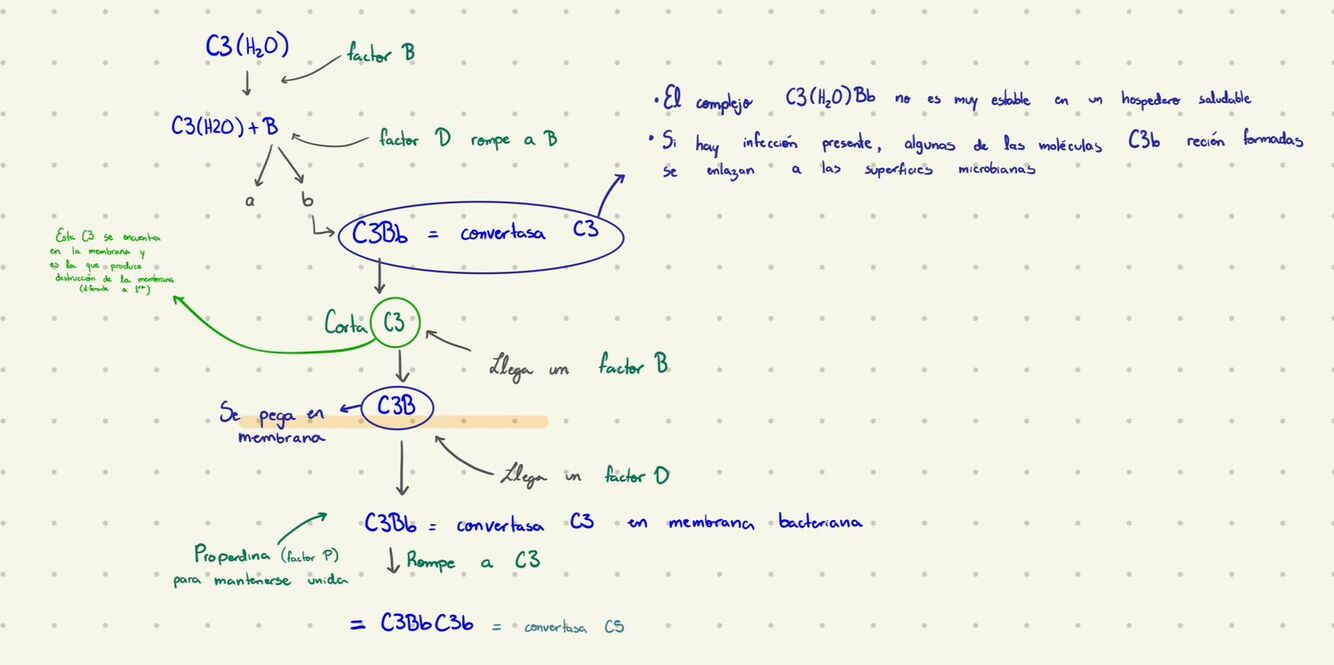 C3(H₂O)
factor B
C3(H2O) + B
factor D rompe a B
a
b
• El complejo C3(H₂O)Bb no es muy estable en un hospedero saludable
• Si hay infección presente, algunas de las moléculas C3b recién formadas
se enlazan a las superficies microbianas
C3Bb = convertasa C3
Esta C3 se encuentra
en la membrana y
es la que produce
destrucción de la membrana
(diferente a 1ra)
Corta C3
Llega un factor B
C3B
Se pega en
membrana
Llega un factor D
C3Bb = convertasa C3 en membrana bacteriana
Properdina (factor P)
para mantenerse unida
Rompe a C3
= C3BbC3b = convertasa C5